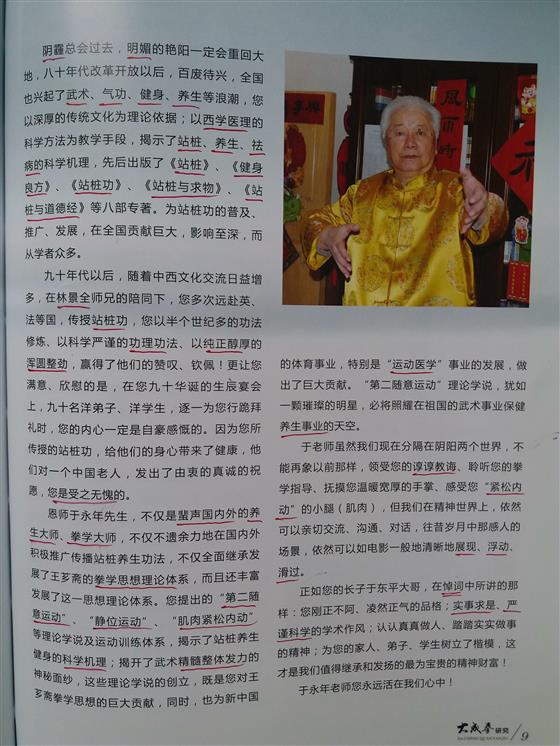 阴霾总会过去，明媚的艳阳一定会重回大
地，八十年代改革开放以后，百废待兴，全国
也兴起了武术、气功、健身、养生等浪潮，您
以深厚的传统文化为理论依据；以西学医理的
科学方法为教学手段，揭示了站桩、养生、祛
病的科学机理，先后出版了《站桩》、《健身
良方》、《站桩功》、《站桩与求物》、《站
桩与道德经》等八部专著。为站桩功的普及、
推广、发展，在全国贡献巨大，影响至深，而
从学者众多。
九十年代以后，随着中西文化交流日益增
多，在林景全师兄的陪同下，您多次远赴英、
法等国，传授站桩功，您以半个世纪多的功法
修炼、以科学严谨的功理功法、以纯正醇厚的
浑圆整劲，赢得了他们的赞叹、钦佩！更让您
满意、欣慰的是，在您九十华诞的生辰宴会
上，九十名洋弟子、洋学生，逐一为您行跪拜
礼时，您的内心一定是自豪感慨的。因为您所
传授的站桩功，给他们的身心带来了健康，他
们对一个中国老人，发出了由衷的真诚的祝
愿，您是受之无愧的。
恩师于永年先生，不仅是蜚声国内外的养
生大师、拳学大师，不仅不遗余力地在国内外
积极推广传播站桩养生功法，不仅全面继承发
展了王芗斋的拳学思想理论体系，而且还丰富
发展了这一思想理论体系。您提出的“第二随
意运动”、“静位运动”、“肌肉紧松内动”
等理论学说及运动训练体系，揭示了站桩养生
健身的科学机理；揭开了武术精髓整体发力的
神秘面纱，这些理论学说的创立，既是您对王
芗斋拳学思想的巨大贡献，同时，也为新中国
風雨時
的体育事业，特别是“运动医学”事业的发展，做
出了巨大贡献。“第二随意运动”理论学说，犹如
一颗璀璨的明星，必将照耀在祖国的武术事业保健
养生事业的天空。
于老师虽然我们现在分隔在阴阳两个世界，不
能再象以前那样，领受您的谆谆教诲、聆听您的拳
学指导、抚摸您温暖宽厚的手掌、感受您“紧松内
动”的小腿（肌肉），但我们在精神世界上，依然
可以亲切交流、沟通、对话，往昔岁月中那感人的
场景，依然可以如电影一般地清晰地展现、浮动、
滑过。
正如您的长子于东平大哥，在悼词中所讲的那
样：您刚正不阿、凌然正气的品格；实事求是、严
谨科学的学术作风；认认真真做人、踏踏实实做事
的精神；为您的家人、弟子、学生树立了楷模，这
才是我们值得继承和发扬的最为宝贵的精神财富！
于永年老师您永远活在我们心中！
大成拳研究
9